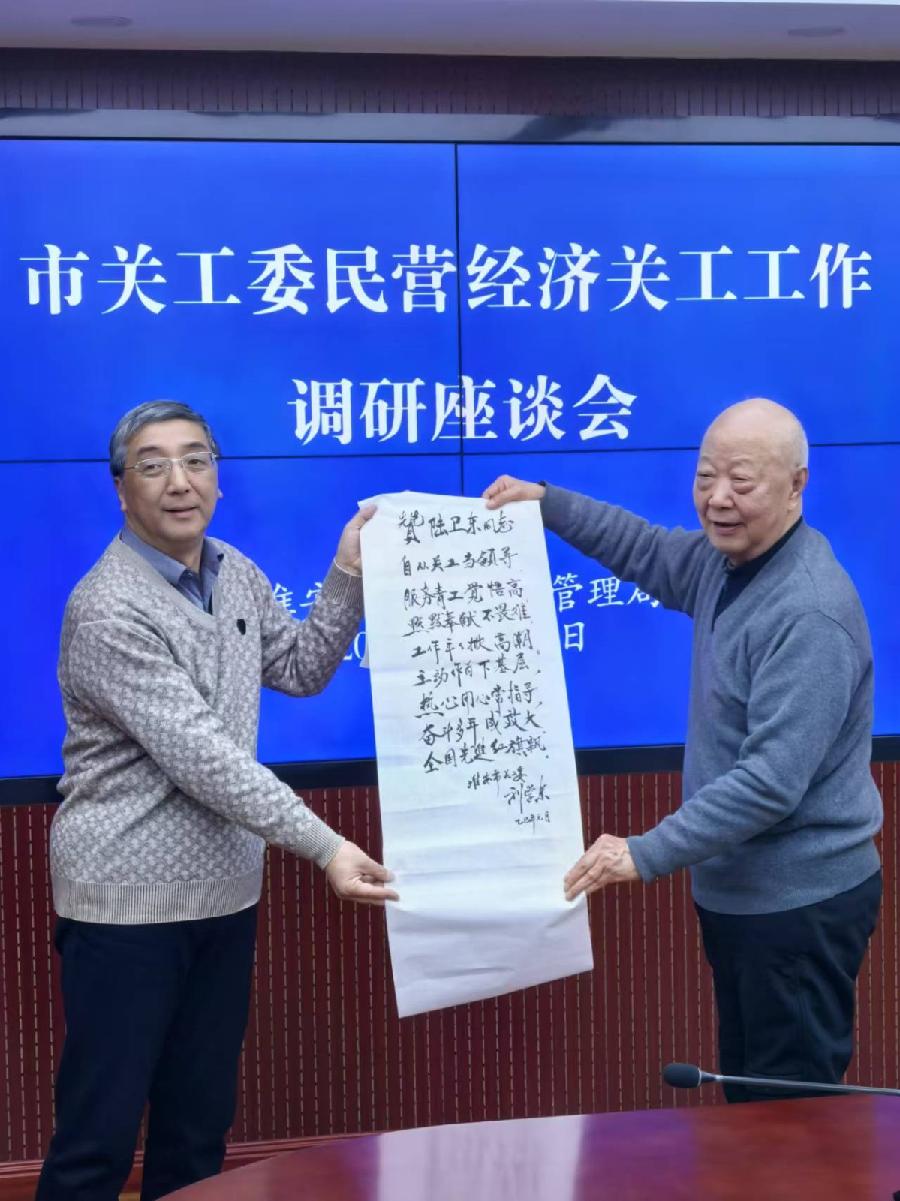 市关工委民营经济关工工作
调研座谈会
淮安
管理局
20
日
赞陆卫东同志
自从关工当领导
服务青工觉悟高
默默奉献不畏难
工作年年掀高潮
主动作为下基层
热心用心常指导
奋斗多年成效大
全国先进红旗飘
淮安市关工委
刘学东